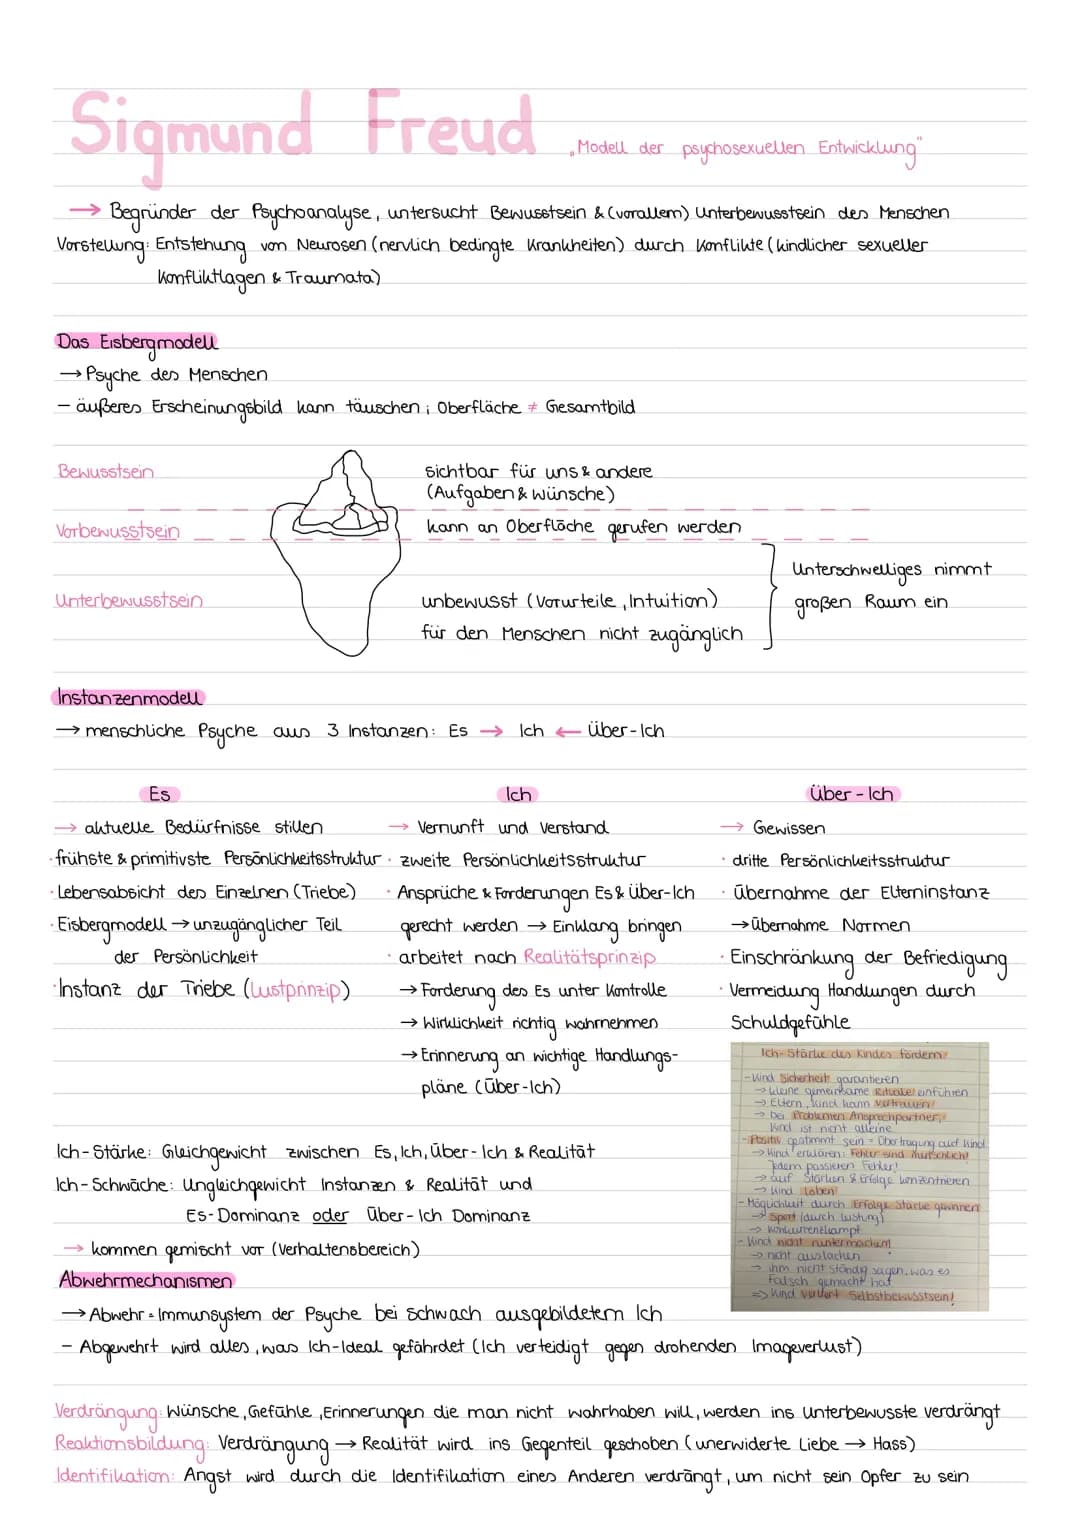 Sigmund Freud „Modell der psychosexuellen Entwicklung"
→ Begründer der Psychoanalyse, untersucht Bewusstsein & (vorallem) Unterbewusstsein des Menschen
Vorstellung: Entstehung von Neurosen (nervlich bedingte Krankheiten) durch Konflikte (kindlicher sexueller
Konfliktlagen & Traumata)
Das Eisbergmodell
→ Psyche des Menschen
- äußeres Erscheinungsbild kann täuschen; Oberfläche ≠ Gesamtbild
Bewusstsein
sichtbar für uns & andere
(Aufgaben & Wünsche)
Vorbewusstsein
kann an Oberfläche gerufen werden
Unterbewusstsein
unbewusst (Vorurteile, Intuition)
für den Menschen nicht zugänglich
Unterschwelliges nimmt
großen Raum ein
Instanzenmodell
→ menschliche Psyche aus 3 Instanzen: Es → Ich ← Über-Ich
Es
→ aktuelle Bedürfnisse stillen
· frühste & primitivste Persönlichkeitsstruktur
· Lebensabsicht des Einzelnen (Triebe)
· Eisbergmodell → unzugänglicher Teil
der Persönlichkeit
· Instanz der Triebe (Lustprinzip)
Ich
→ Vernunft und Verstand
· zweite Persönlichkeitsstruktur
· Ansprüche & Forderungen Es & Über-Ich
gerecht werden → Einklang bringen
· arbeitet nach Realitätsprinzip
→ Forderung des Es unter Kontrolle
→ Wirklichkeit richtig wahrnehmen
→ Erinnerung an wichtige Handlungs-
pläne (Über-Ich)
Über-Ich
→ Gewissen
· dritte Persönlichkeitsstruktur
· Übernahme der Elterninstanz
→ Übernahme Normen
· Einschränkung der Befriedigung
· Vermeidung Handlungen durch
Schuldgefühle
Ich-Stärke des Kindes fördern:
- Kind Sicherheit garantieren
→ kleine gemeinsame Rituale einführen
→ Eltern, Kind kann vertrauen!
→ bei Problemen Ansprechpartner,
Kind ist nicht alleine
- Positiv gestimmt sein = Übertragung auf Kind
→ Kind erklären: Fehler sind menschlich!
Jedem passieren Fehler!
→ auf Stärken & Erfolge konzentrieren
→ Kind loben!
- Möglichkeit durch Erfolge Stärke gewinnen
→ Sport (durch Leistung)
→ Konkurrenzkampf
- Kind nicht runtermachen!
→ nicht auslachen
→ ihm nicht ständig sagen, was es
falsch gemacht hat
=> Kind verliert Selbstbewusstsein!
Ich-Stärke: Gleichgewicht zwischen Es, Ich, Über-Ich & Realität
Ich-Schwäche: Ungleichgewicht Instanzen & Realität und
Es-Dominanz oder Über-Ich Dominanz
→ kommen gemischt vor (Verhaltensbereich)
Abwehrmechanismen
→ Abwehr = Immunsystem der Psyche bei schwach ausgebildetem Ich
- Abgewehrt wird alles, was Ich-Ideal gefährdet (Ich verteidigt gegen drohenden Imageverlust)
Verdrängung: Wünsche, Gefühle, Erinnerungen die man nicht wahrhaben will, werden ins Unterbewusste verdrängt
Reaktionsbildung: Verdrängung → Realität wird ins Gegenteil geschoben (unerwiderte Liebe → Hass)
Identifikation: Angst wird durch die Identifikation eines Anderen verdrängt, um nicht sein Opfer zu sein